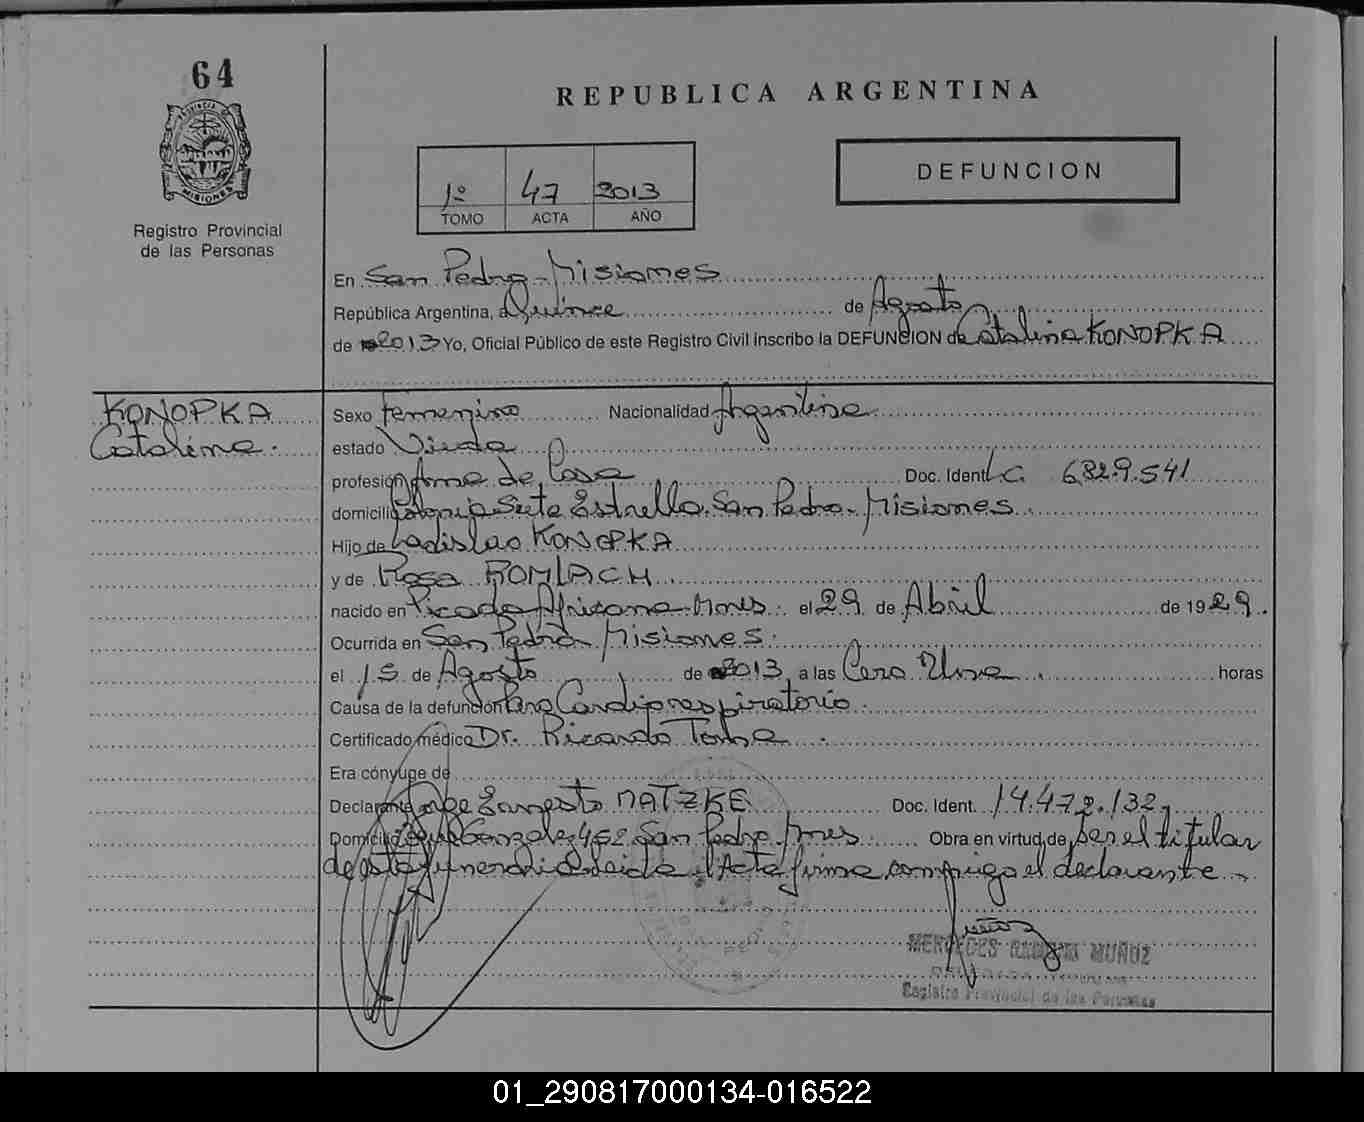 64
PROVINCIA
MISIONES
Registro Provincial
de las Personas
REPUBLICA ARGENTINA
1º 47 2013
TOMO ACTA AÑO
DEFUNCION
En San Pedro - Misiones
República Argentina, a Quince de Agosto
de 2013 Yo, Oficial Público de este Registro Civil inscribo la DEFUNCION de Catalina KONOPKA
KONOPKA
Catalina.
Sexo Femenino Nacionalidad Argentina
estado Viuda
profesión Ama de Casa Doc. Ident. L.C. 6829.541
domicilio Colonia Siete Estrella. San Pedro - Misiones
Hijo de Ladislao KONOPKA
y de Rosa
nacido en Picada Africana - Mnes. el 29 de Abril de 1929.
Ocurrida en San Pedro - Misiones.
el 15 de Agosto de 2013 a las Cero Una horas
Causa de la defunción Paro Cardiorespiratorio.
Certificado médico Dr. Ricardo
Era cónyuge de
Declarante Jorge Ernesto MATZKE Doc. Ident. 14.472.132
Domicilio Gonzalez 462 San Pedro - Mnes Obra en virtud de ser el titular
de esta funeraria Leida el Acta firma conmigo el declarante
MERCEDES RAMONA MUÑOZ
Registro Provincial de las Personas
01_290817000134-016522